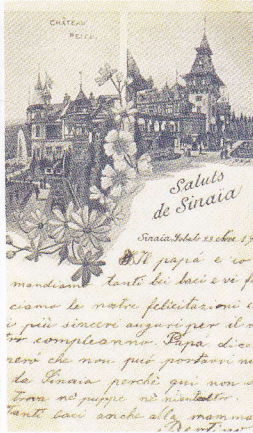 CHÂTEAU
PELEŞ.
Saluts
de Sinaia
Sinaia, Sabato 22
Il papà e io
mandiamo tanti bei baci e vi fac
ciamo le nostre felicitazioni e
i più sinceri auguri per il vo
tro compleanno. Papà dice
però che non può portarvi n
da Sinaia perchè qui non s
trova nè puppe nè
Tanti baci anche alla mamma